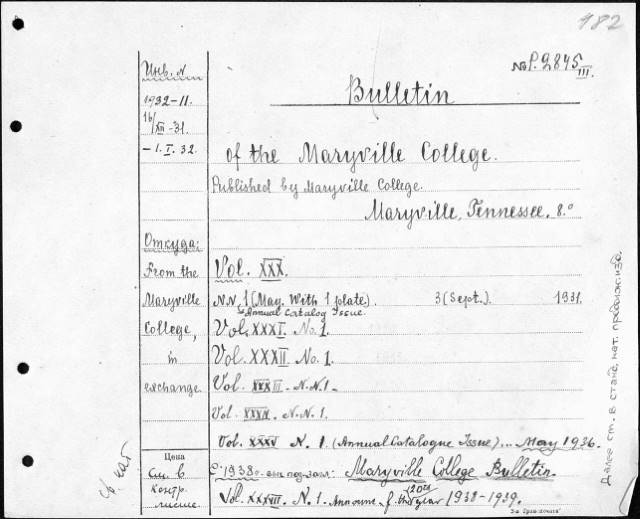 982
No P. 2845 III.
Инв. N
1932-II.
16/XII -31.
- 1. I. 32.
Bulletin
of the Maryville College.
Published by Maryville College.
Maryville, Tennessee. 8.°
Откуда:
From the
Maryville
College,
in
exchange.
Vol. XXX.
N.N. 1 (May. With 1 plate). 3 (Sept.). 1931.
Annual Catalog Issue.
Vol. XXXI. No. 1.
Vol. XXXII. No. 1.
Vol. XXXIII. N.N. 1.
Vol. XXXIV. N.N. 1.
Vol. XXXV N. 1. (Annual Catalogue Issue)... May 1936.
Цена
См. в
контр.
листе.
С 1938 г. вых. под загл.: Maryville College Bulletin.
Vol. XXXVII. N. 1. Announc. of the 120th year 1938-1939.
Далее ст. в станд. кат. продолж. изд.